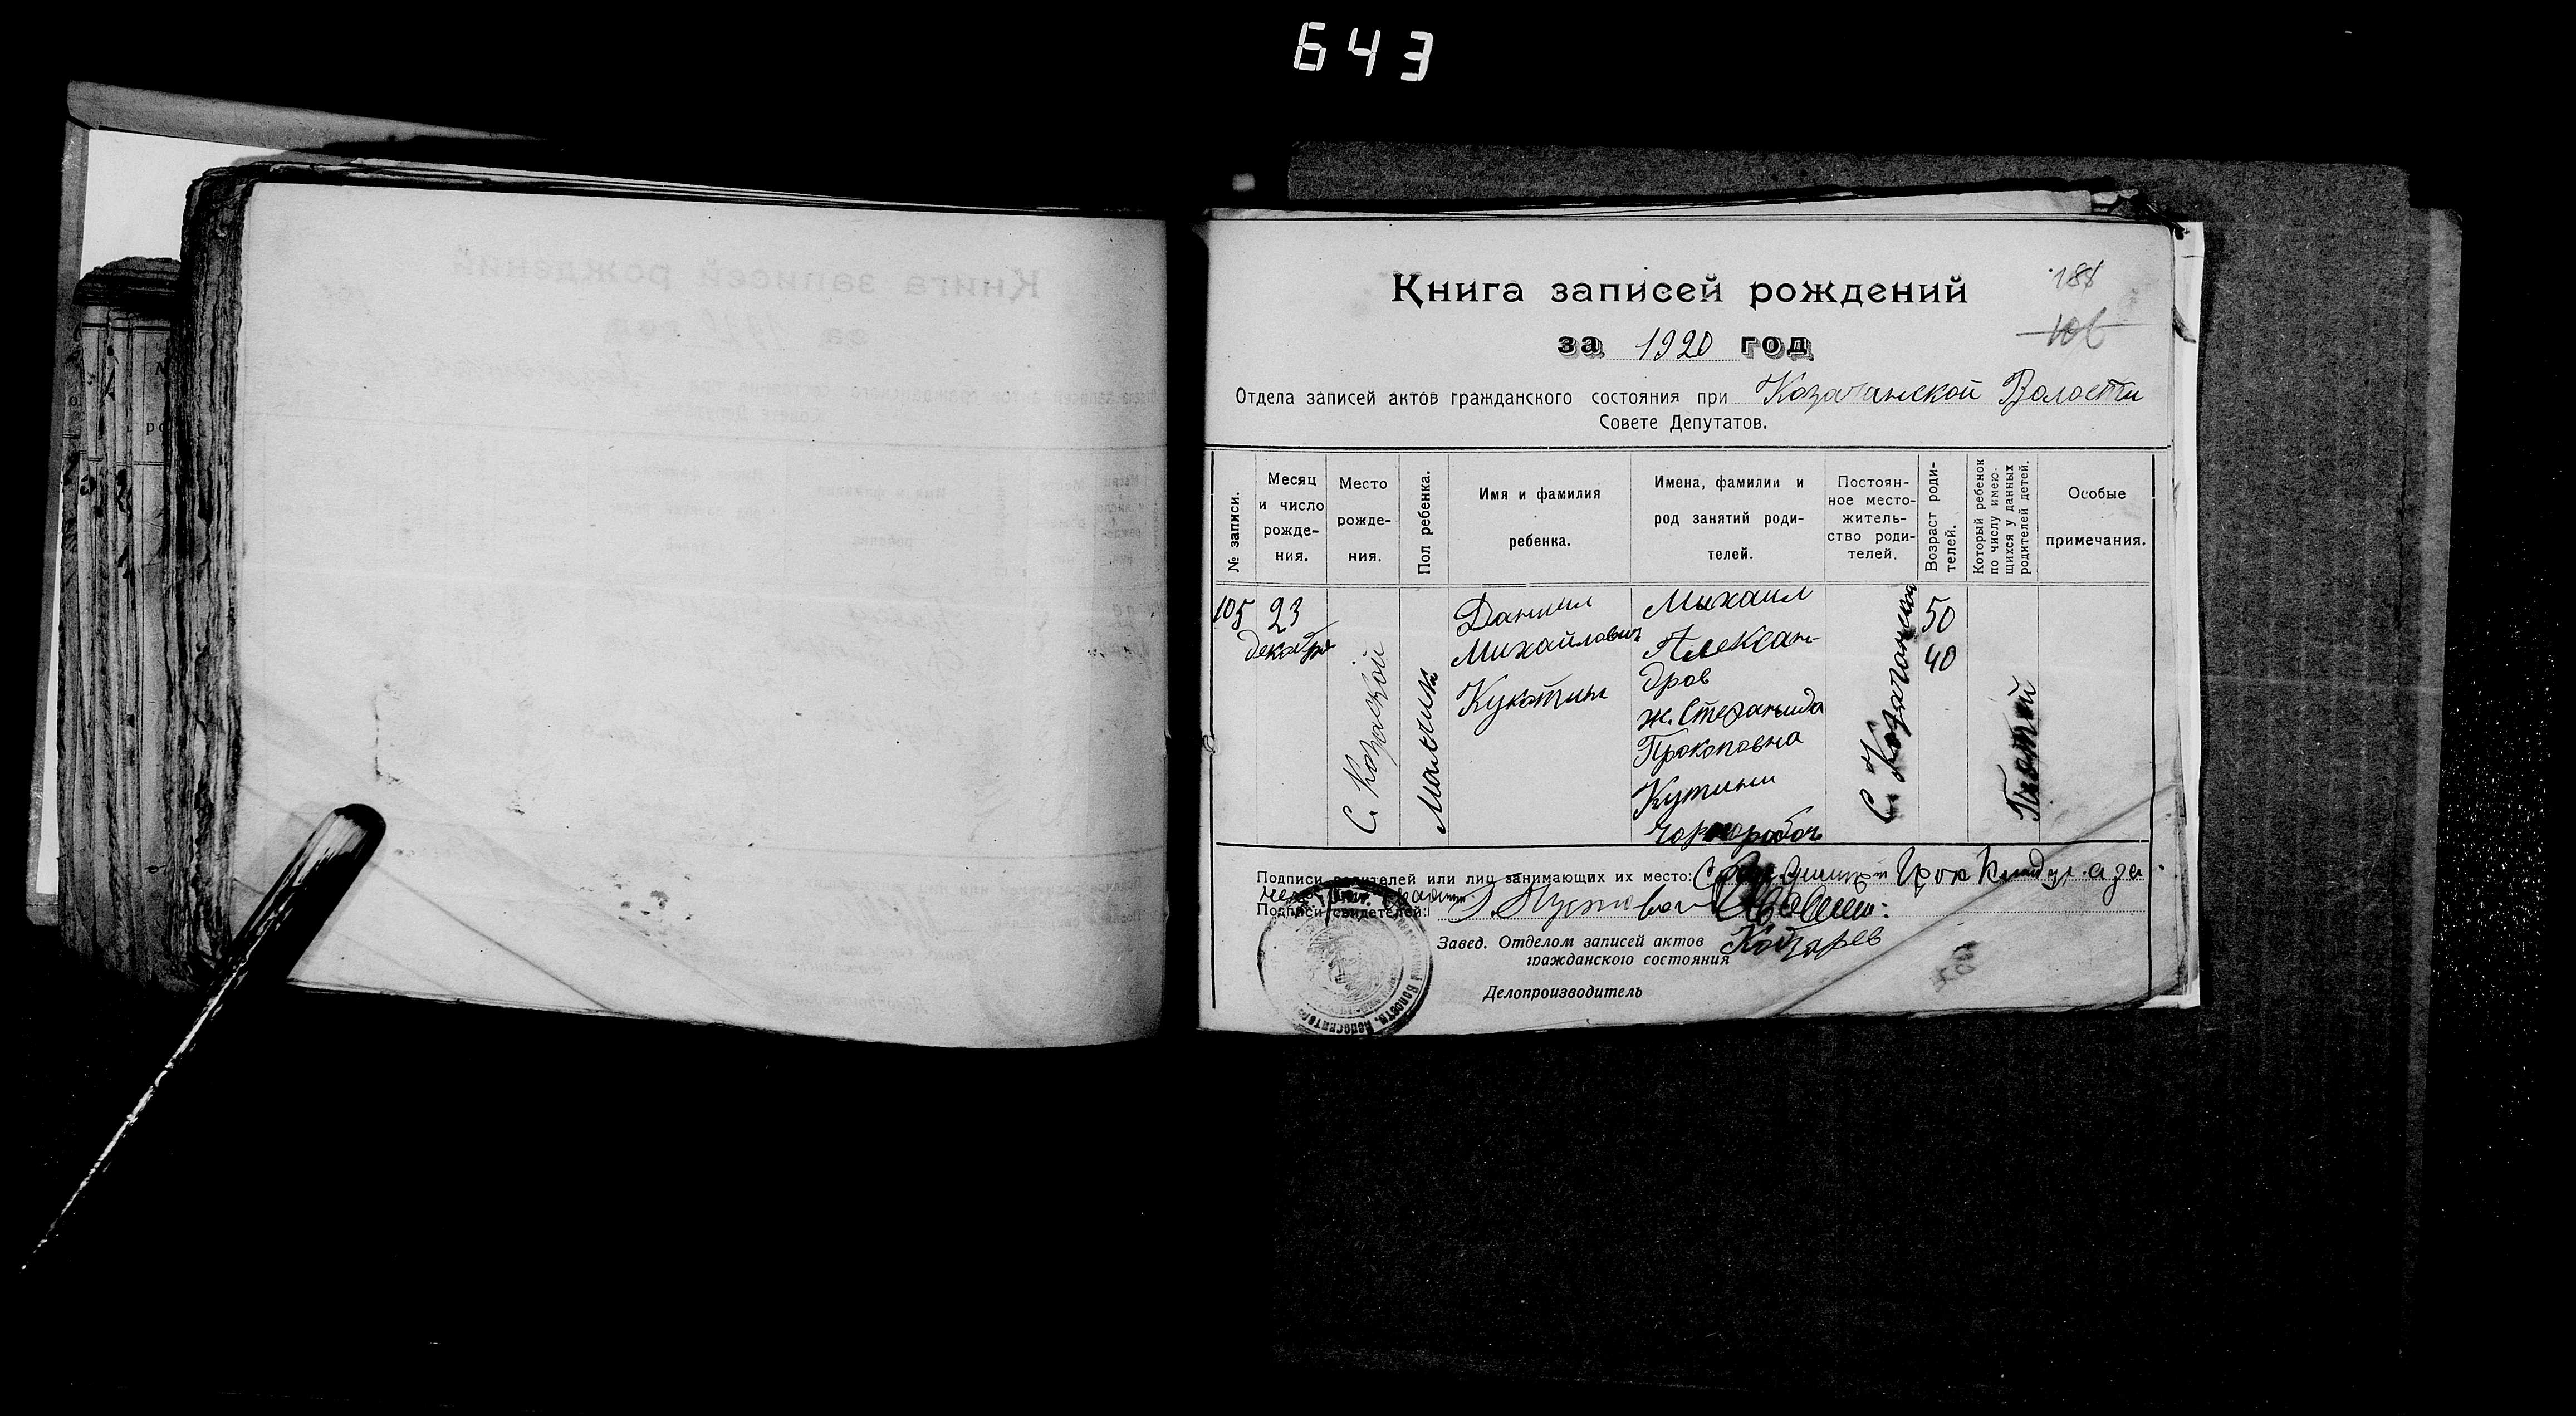 643
188
106
Книга записей рождений
за 1920 год
Отдела записей актов гражданского состояния при Козачанской Волости
Совете Депутатов.
№ записи.
Месяц и число рожде- ния.
Место рожде- ния.
Пол ребенка.
Имя и фамилия ребенка.
Имена, фамилии и род занятий роди- телей.
Постоян- ное место- житель- ство роди- телей.
Возраст роди- телей.
Который ребенок по числу имею- щихся у данных родителей детей.
Особые примечания.
105
23
декабря
С.
Мальчик
Даниил
Михайлович
Михаил
Алексан-
дров
ж. Степанида
Прокоповна
Кутини
С.
50
40
Пятый
Подписи родителей или лиц занимающих их место:
Подписи свидетелей:
Завед. Отделом записей актов
гражданского состояния
Делопроизводитель